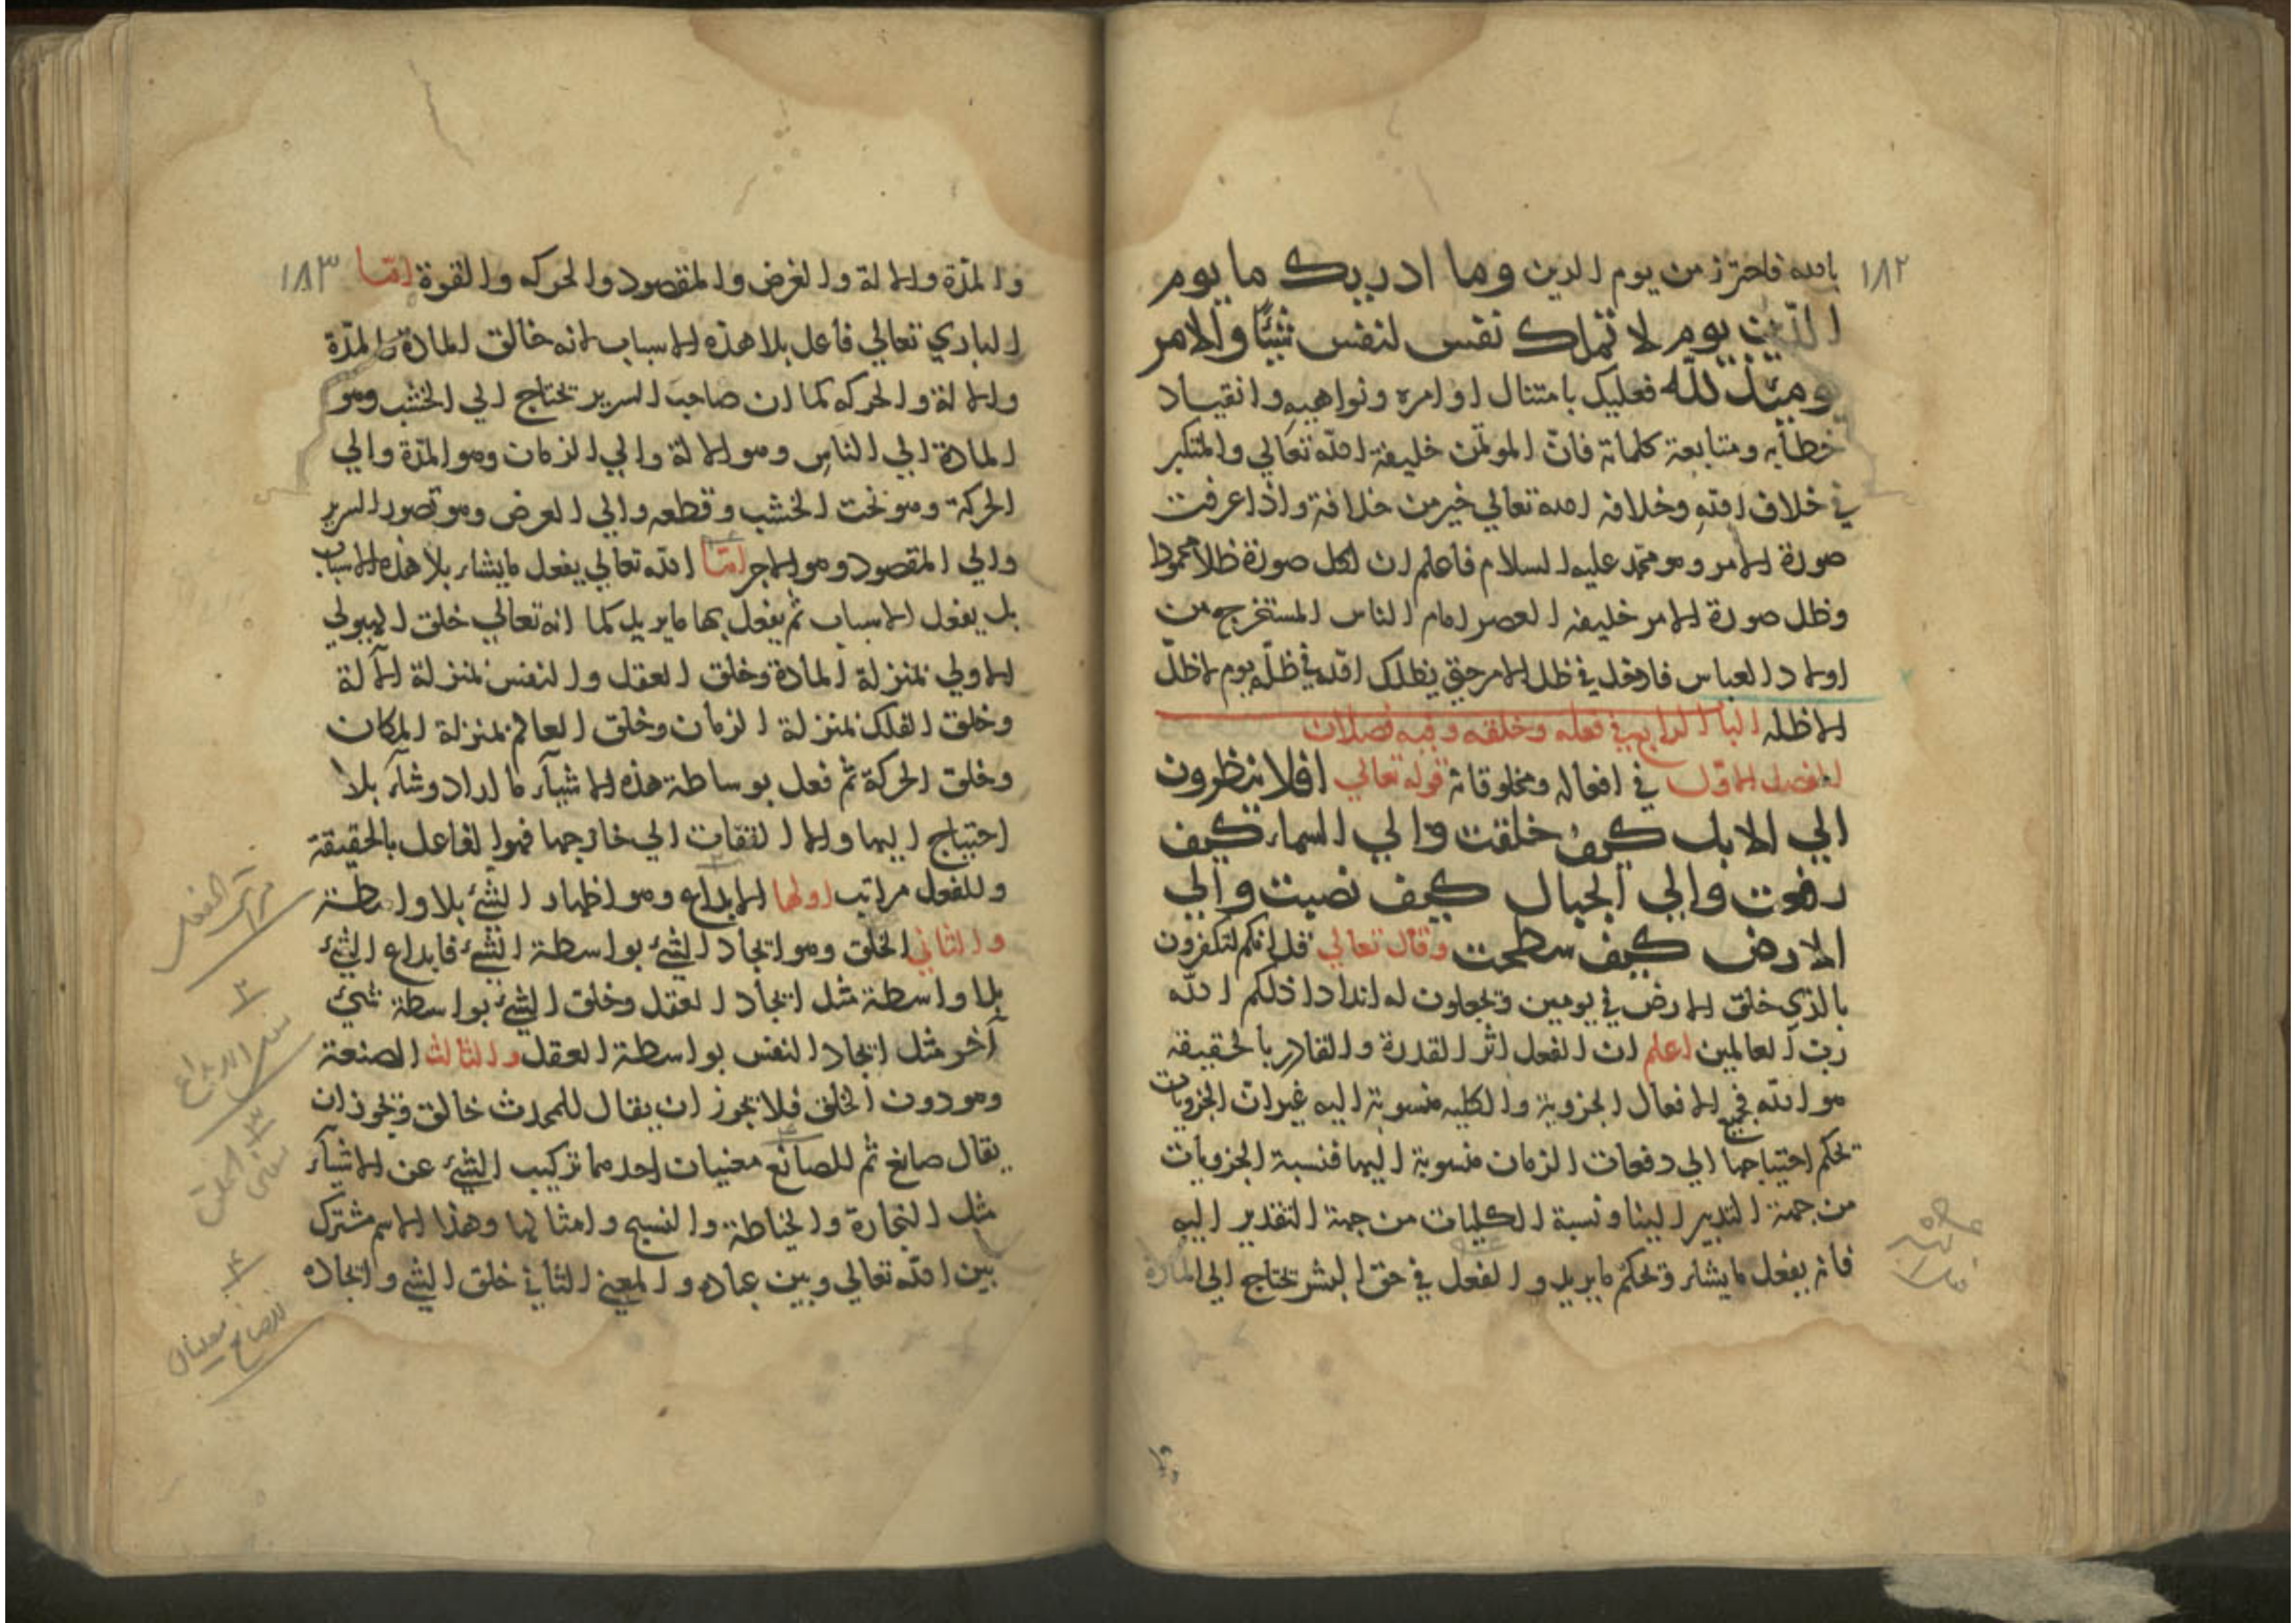 ١٨٢
بالله فاحترز من يوم الدين وما ادريك ما يوم
الدين يوم لا تملك نفس لنفس شيئا والامر
يومئذ لله فعليك بامتثال اوامره ونواهيه وانقياد
خطابه ومتابعة كلماته فان المؤتمن خليفة الله تعالي والمتكبر
في خلاف الله وخلافه الله تعالي خير من خلافة واذا عرفت
صورة الامر وهو محمد عليه السلام فاعلم ان لكل صورة ظلا محمودا
وظل صورة الامر خليفه العصر امام الناس المستخرج من
اولاد العباس فادخل في ظل الامر حتي يظلك الله في ظله يوم لا ظل
الا ظله الباب الرابع في فعله وخلقه وفيه فصلان
الفصل الاول في افعاله ومخلوقاته قوله تعالي افلا ينظرون
الي الابل كيف خلقت والي السماء كيف
رفعت والي الجبال كيف نصبت والي
الارض كيف سطحت وقال تعالي قل ائنكم لتكفرون
بالذي خلق الارض في يومين وتجعلون له اندادا ذلكم الله
رب العالمين اعلم ان الفعل اثر القدرة والقادر بالحقيقة
هو الله فجميع الافعال الجزوية والكليه منسوبة اليه غير ان الجزويات
تحكم احتياجها الي دفعات الزمان منسوبة اليها فنسبة الجزويات
من جهة التدبير الينا ونسبة الكليات من جهة التقدير اليه
فانه يفعل ما يشاء ويحكم ما يريد والفعل في حق البشر يحتاج الي المادة
١٨٣
والمدة والالة والغرض والمقصود والحركه والقوة اما
الباري تعالي فاعل بلا هذه الاسباب لانه خالق المادة والمدة
والالة والحركه كما ان صاحب السرير يحتاج الي الخشب وهو
المادة الي الناس وهو الالة والي الزمان وهو المدة والي
الحركة وهو نحت الخشب وقطعه والي الغرض وهو تصور السرير
والي المقصود وهو الاجر اما الله تعالي يفعل ما يشاء بلا هذه الاسباب
بل يفعل الاسباب ثم يفعل بها ما يريد كما انه تعالي خلق الهيولي
الاولي بمنزلة المادة وخلق العقل والنفس بمنزلة الآلة
وخلق الفلك بمنزلة الزمان وخلق العالم بمنزلة المكان
وخلق الحركة ثم فعل بوساطة هذه الاشياء ما اراد وشاء بلا
احتياج اليها ولا التفات الي خارجها فهو الفاعل بالحقيقة
وللفعل مراتب اولها الابداع وهو اظهار الشئ بلا واسطة
والثاني الخلق وهو ايجاد الشئ بواسطة الشئ فابداع الشئ
بلا واسطة مثل ايجاد العقل وخلق الشئ بواسطة شئ
آخر مثل ايجاد النفس بواسطة العقل والثالث الصنعة
وهو دون الخلق فلا يجوز ان يقال للمحدث خالق ويجوز ان
يقال صانع ثم للصانع معنيان احدهما تركيب الشئ عن الاشياء
مثل النجارة والخياطة والنسج وامثالها وهذا الاسم مشترك
بين الله تعالي وبين عباده والمعني الثاني خلق الشئ وايجاده
مراتب الفعل
٢
الابداع
٣
الخلق
٤
للصانع معنيان